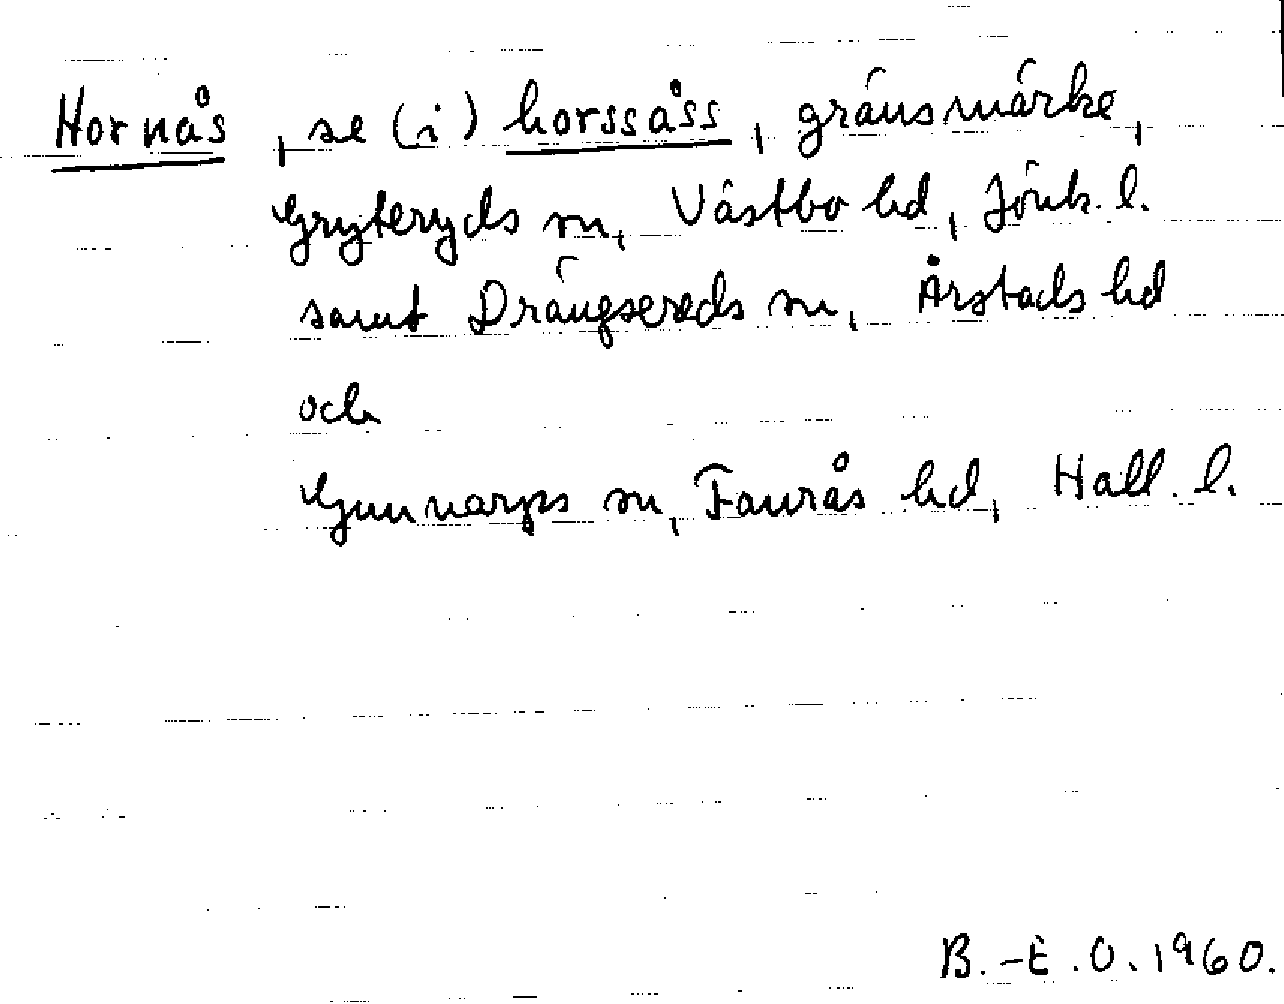 Hornås, se (i) horssåss, gränsmärke,
Gryteryds sn, Västbo hd, Jönk. l.
samt Drängsereds sn, Årstads hd
och
Gunnarps sn, Faurås hd, Hall. l.
B.-E.O. 1960.